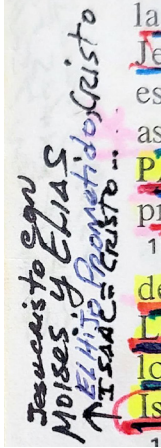 Jesucristo con
MOISES Y ELIAS
EL HIJO PROMETIDO, CRISTO
↑ ISAAC = CRISTO ...
la
es
as
P
pr
1
de
lo
Is